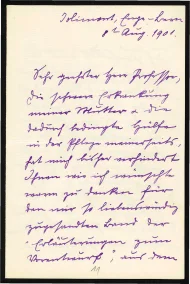 Tolimont, Enge-Bern
8t Aug. 1901.
Sehr geehrter Herr Professor,
die schwere Erkrankung
meiner Mutter & die
dadurch bedingte Hülfe
in der Pflege meinerseits,
hat mich bisher verhindert
Ihnen wie ich wünschte
zu danken für
den mir so liebenswürdig
zugesandten Band der
"Erläuterungen zum
Vorentwurf", aus dem
11